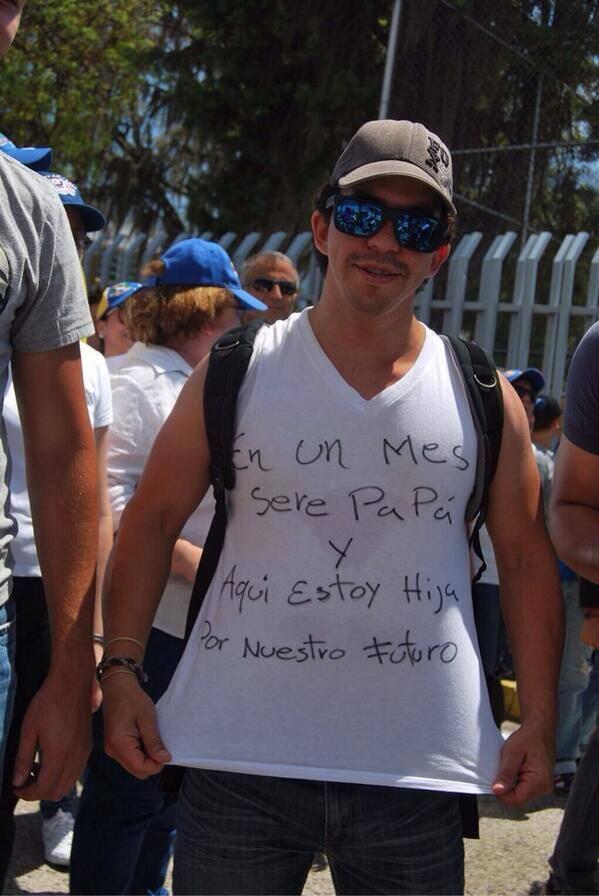 En un Mes
Sere PaPá
Y
Aqui Estoy Hija
Por Nuestro Futuro
FOX